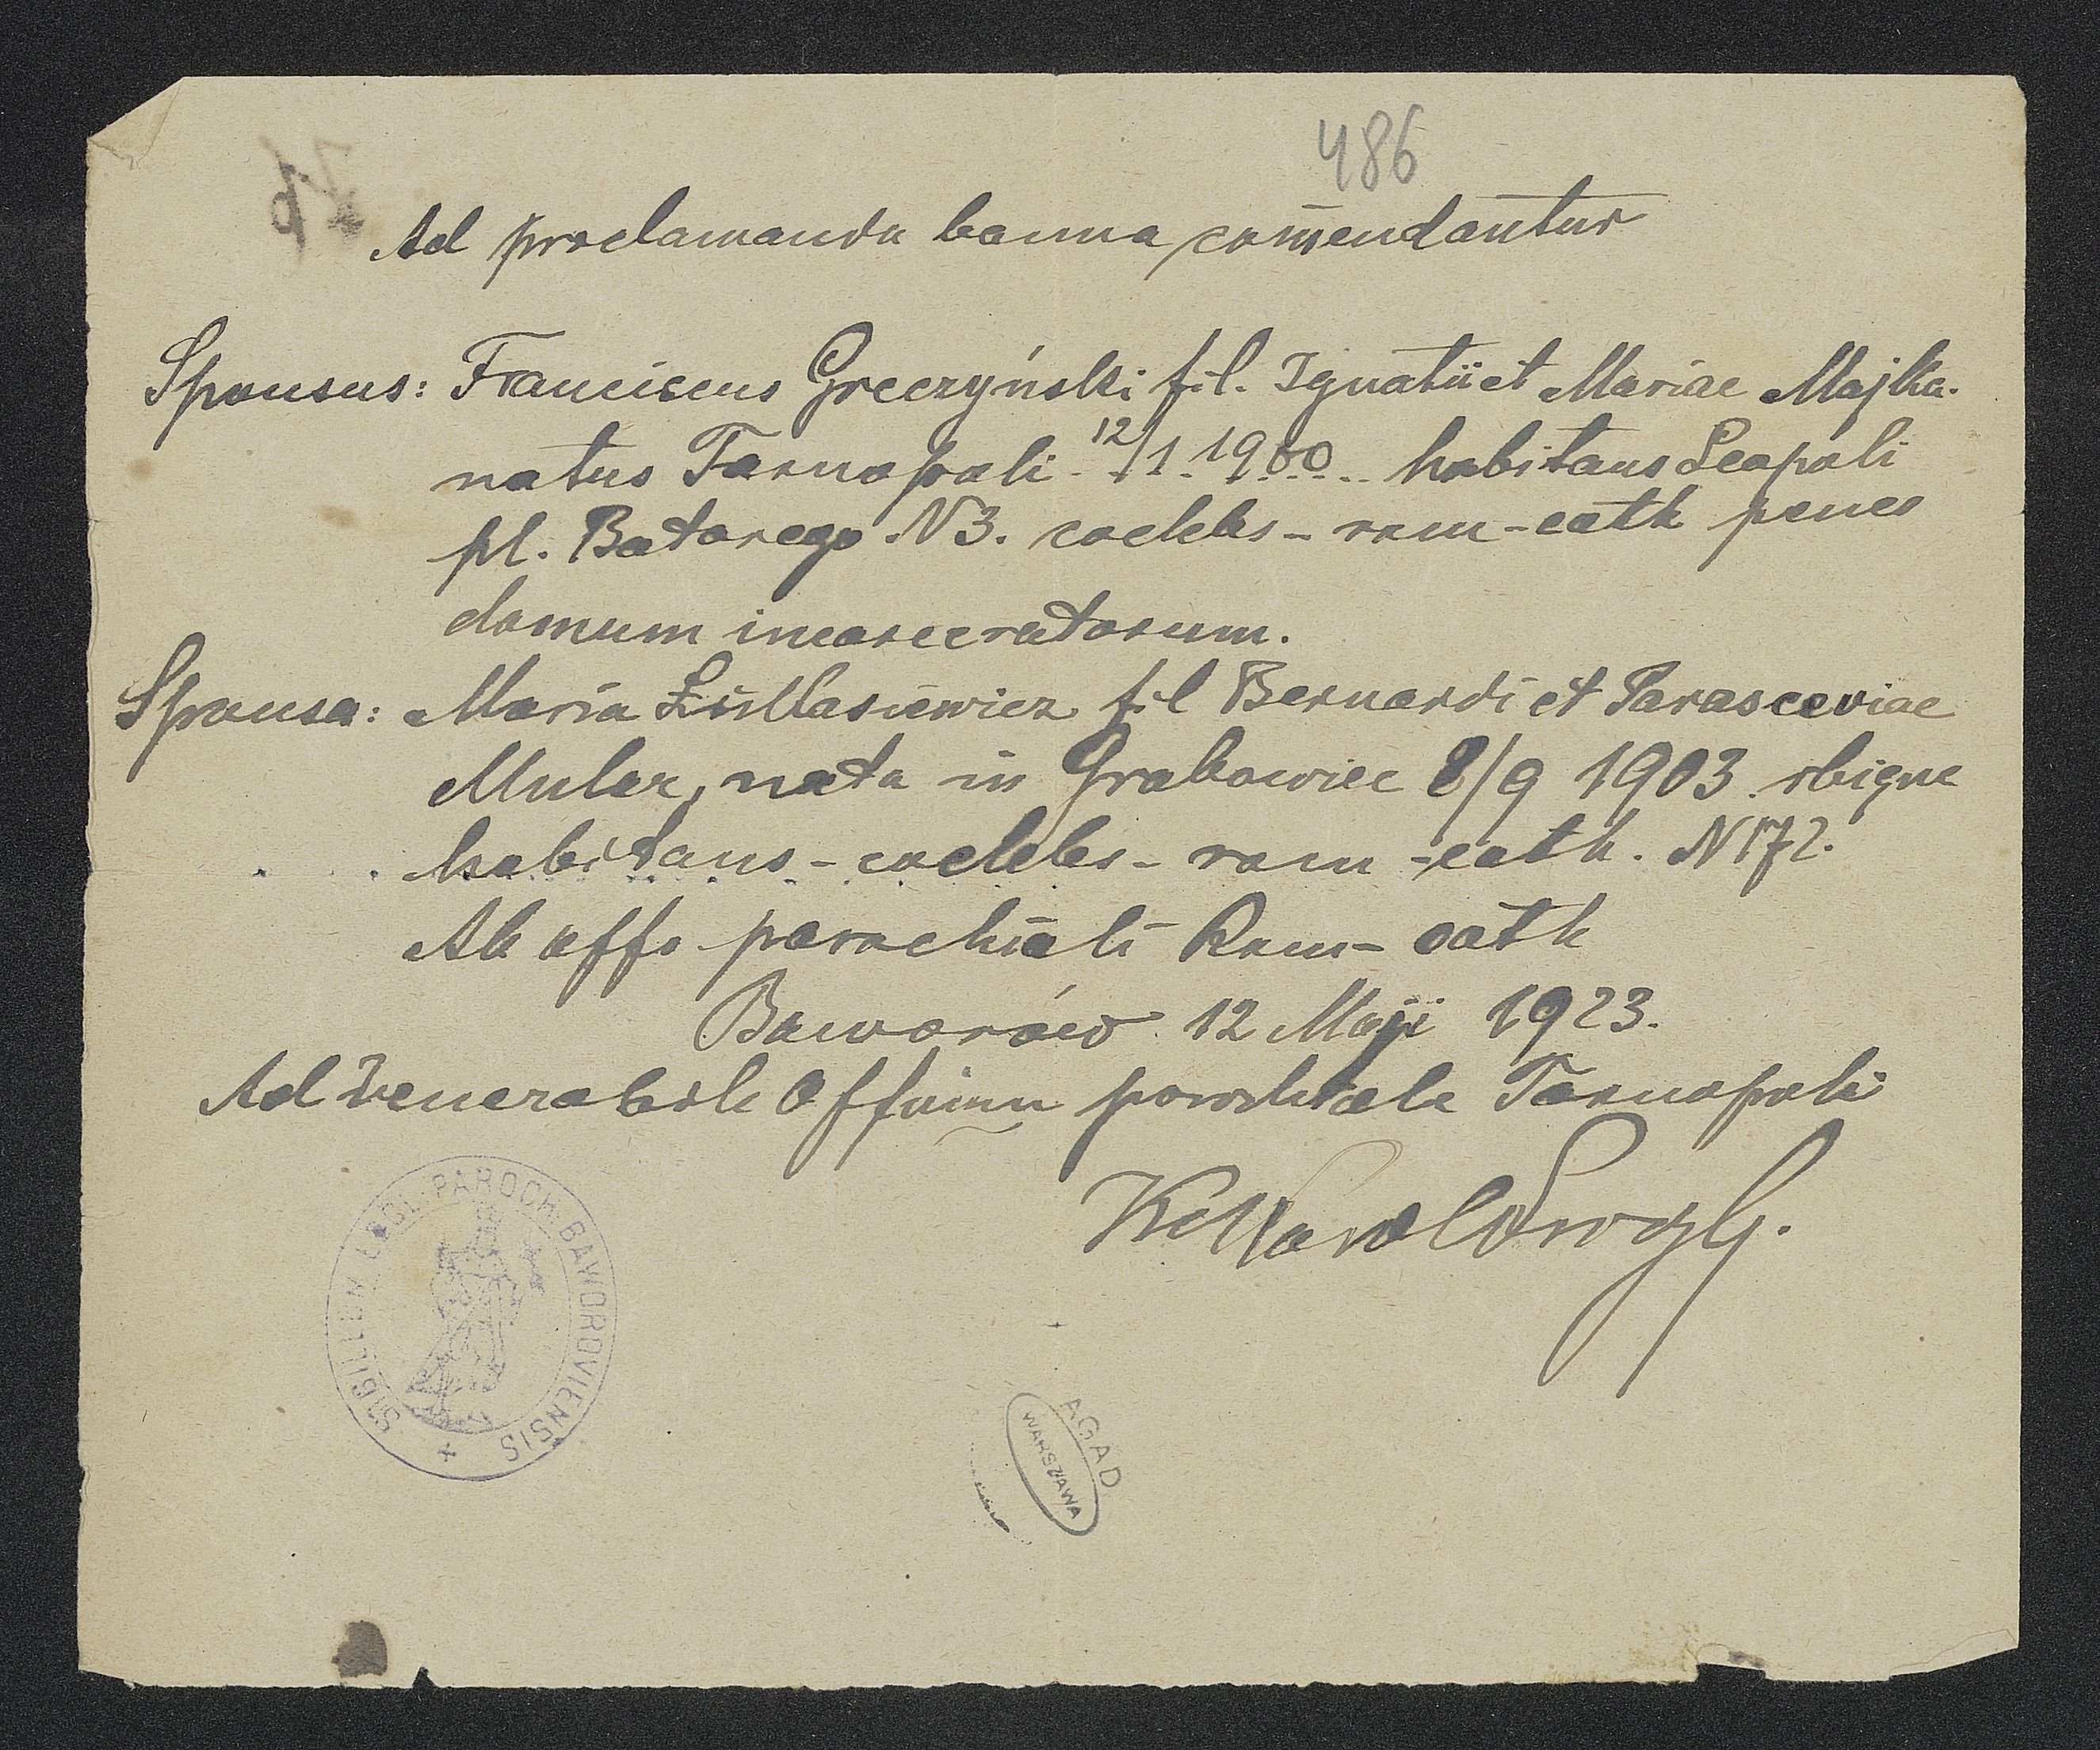 486
Ad proclamanda banna com̄endantur
Sponsus: Franciscus Greczyński fil. Ignatii et Mariae Majka.
natus Tarnopoli 12/1 1900 habitans Leopoli
pl. Batorego N 3. coelebs - rom - cath penes
domum incarceratorum.
Sponsa: Maria fil Bernardi et Parasceviae
Muler, nata in Grabowiec 8/9 1903 ibique
habitans - coelebs - rom - cath. N 172.
Ab offo parochiali Rom - cath
Baworów 12 Maji 1923.
Ad Venerabile Officium parochiale Tarnopoli
SIGILLUM PAROCH BAWOROVIENSIS
AGAD
WARSZAWA